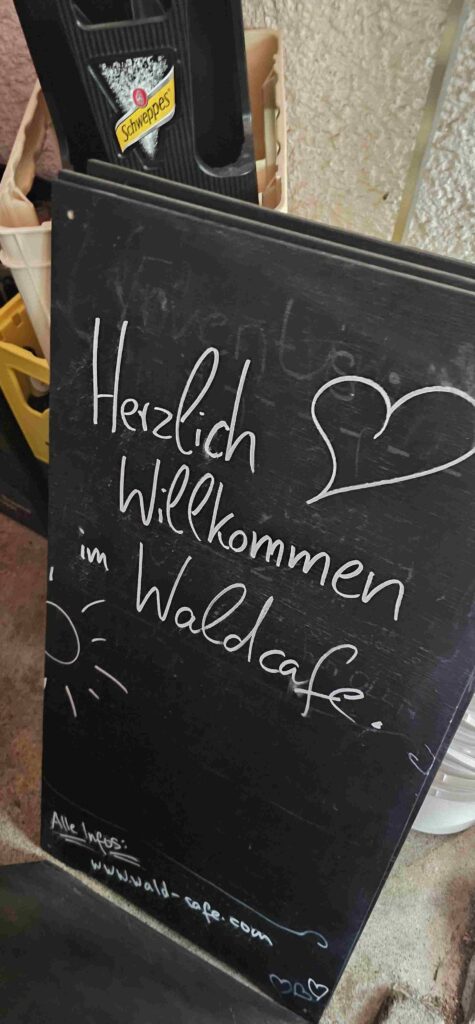 Schweppes
Herzlich
Willkommen
im Waldcafe.
Alle Infos:
www.wald-cafe.com